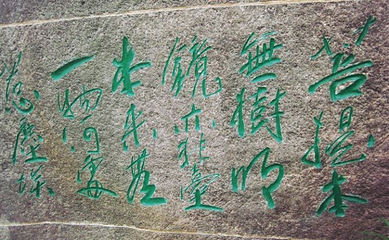 菩提本
無樹明
鏡亦非臺
本来無
一物何處
惹塵埃